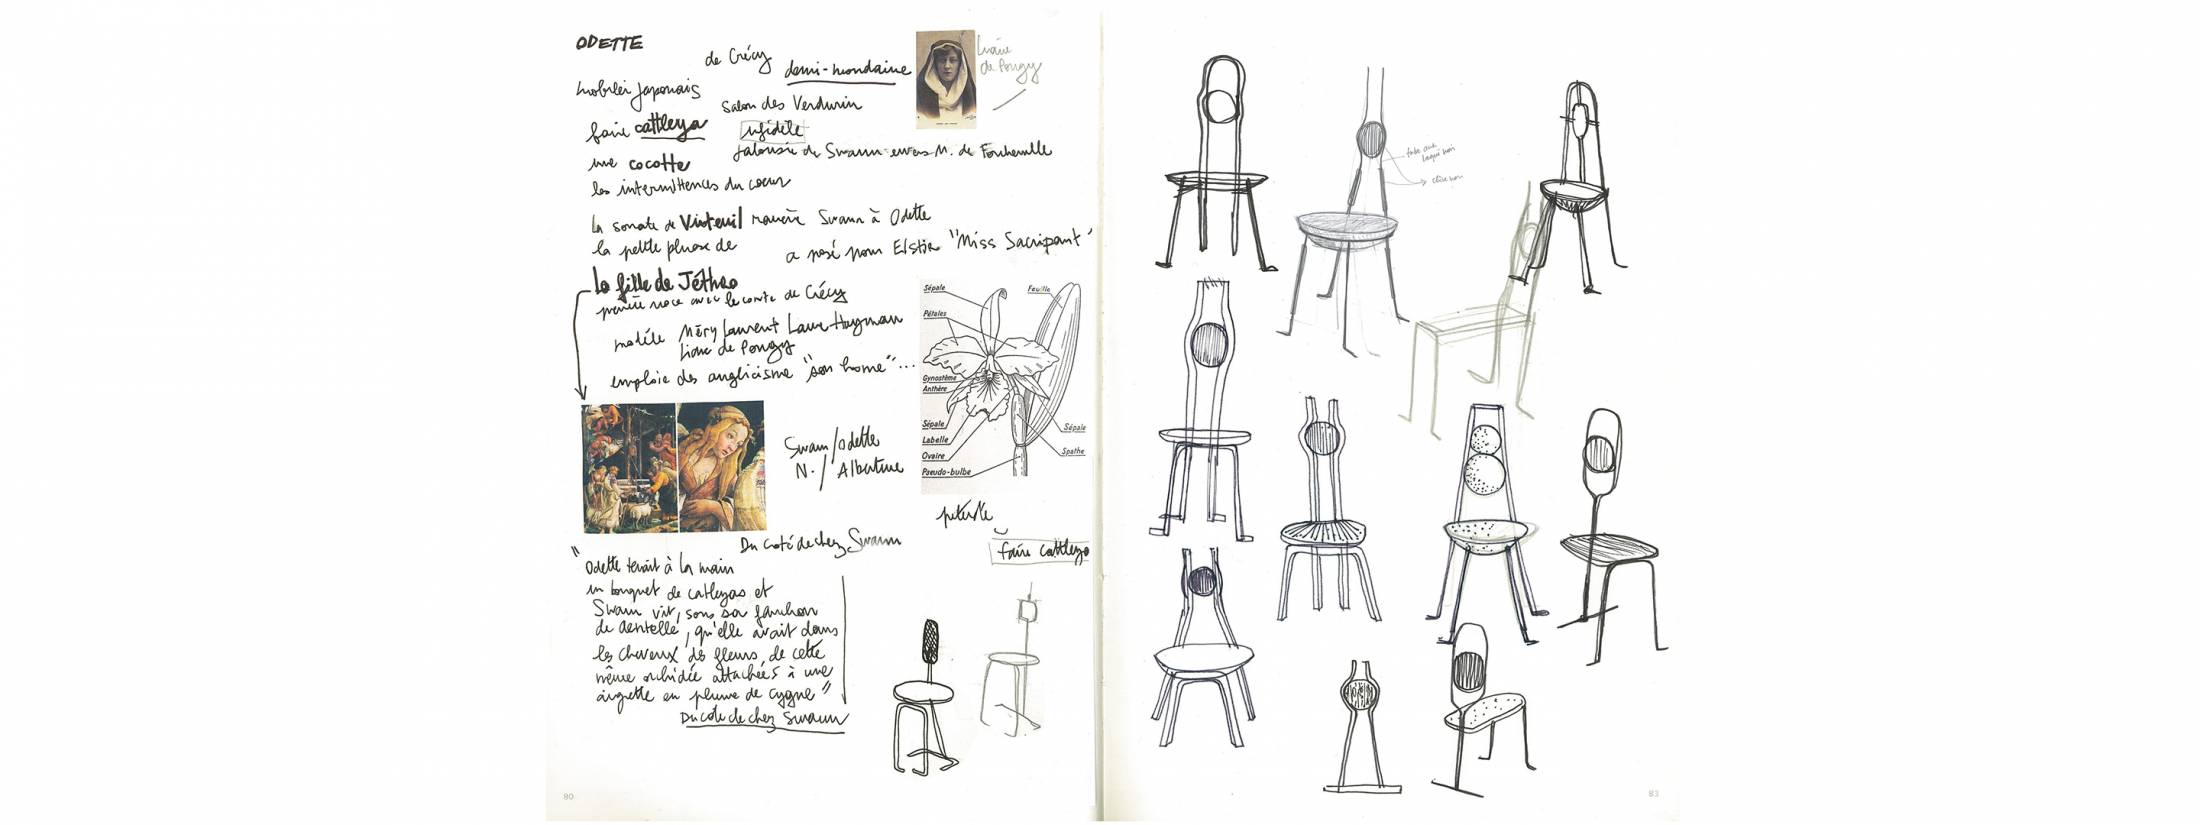 ODETTE
de Crécy
demi-mondaine
Liane
de Pougy
mobilier Japonais
Salon des Verdurin
faire cattleya
infidèle
jalousie de Swann envers M. de Forcheville
une cocotte
les intermittences du coeur
la sonate de Vinteuil ramène Swann à Odette
la petite phrase de
a posé pour Elstir "Miss Sacripant"
la fille de Jéthro
première noce avec le comte de Crécy
modèle Méry Laurent Laure Hayman
Liane de Pougy
emploie des anglicisme "son home"...
Sépale
Feuille
Pétales
Gynostème
Anthère
Sépale
Labelle
Ovaire
Pseudo-bulbe
Sépale
Spathe
Swann/Odette
N. / Albertine
faire cattleya
Du côté de chez Swann
"Odette tenait à la main
un bouquet de catleyas et
Swann vit, sous sa fanchon
de dentelle, qu'elle avait dans
les cheveux des fleurs de cette
même orchidée attachées à une
aigrette en plume de cygne"
Du côté de chez Swann
80
tube
laqué noir
83